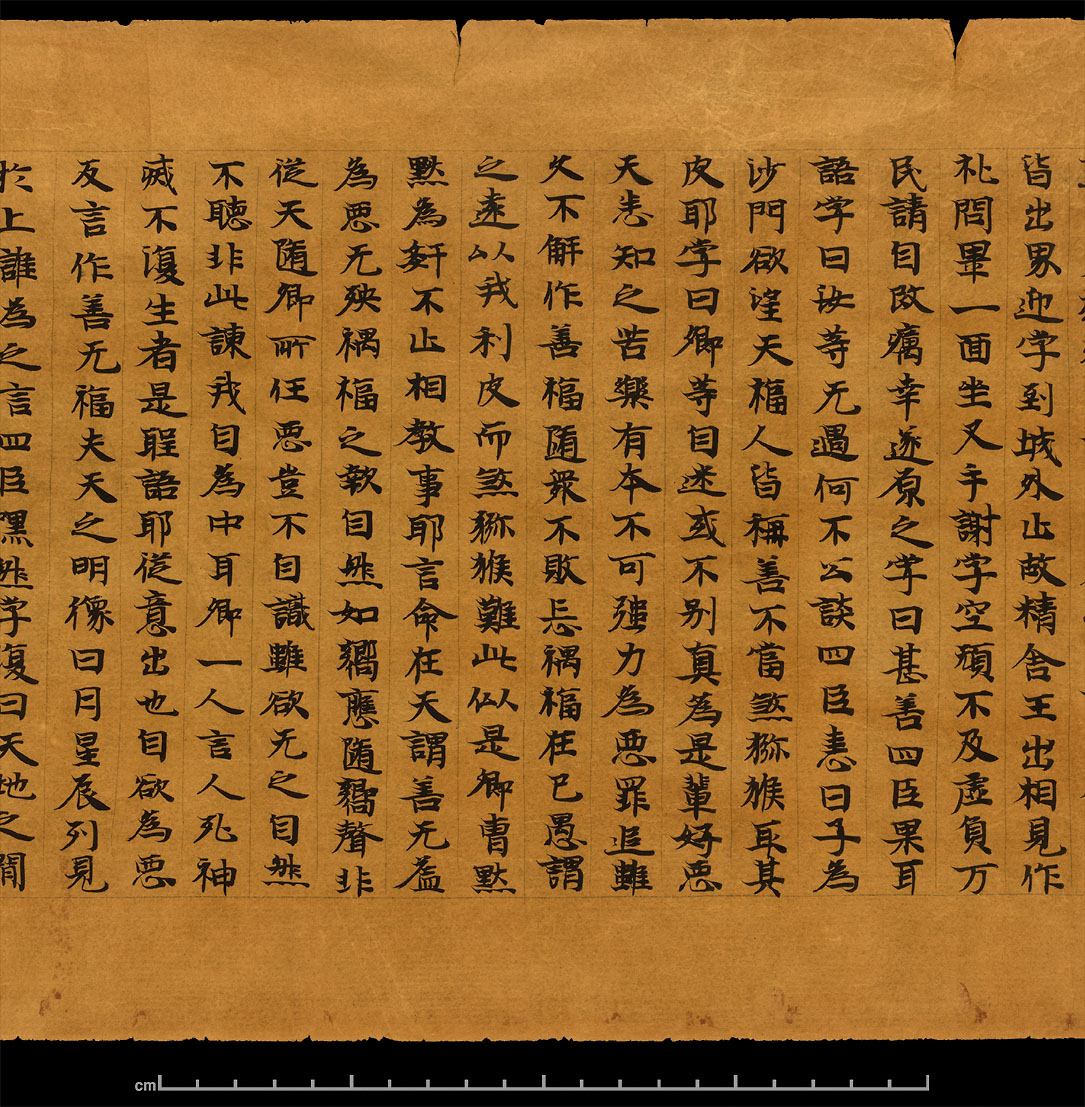 皆出界迎孛到城外止故精舍王出相見作
礼問畢一面坐叉手謝孛空頑不及虛負万
民請自改癘幸遂原之孛曰甚善四臣果耳
語孛曰汝等无遇何不公談四臣恚曰子為
沙門欲望天福人皆稱善不當煞猕猴耳其
皮耶孛曰卿等自迷或不别真為是輩好惡
天悉知之苦樂有本不可強力為惡罪追雖
久不解作善福随衆不敗忘禍福在已愚謂
之遠以我利皮而煞猕猴難此似是卿曹黙
黙為姧不止相教事耶言命在天謂善无益
為惡无殃禍福之欵自㷊如嚮應随嚮聲非
從天随卿所任惡豈不自識雖欲无之自㷊
不聽非此諫我自為中耳卿一人言人死神
滅不復生者是聖語耶從意出也自欲為惡
反言作善无福夫天之明像日月星辰列見
於上誰為之言四臣嘿㷊孛復曰天地之間